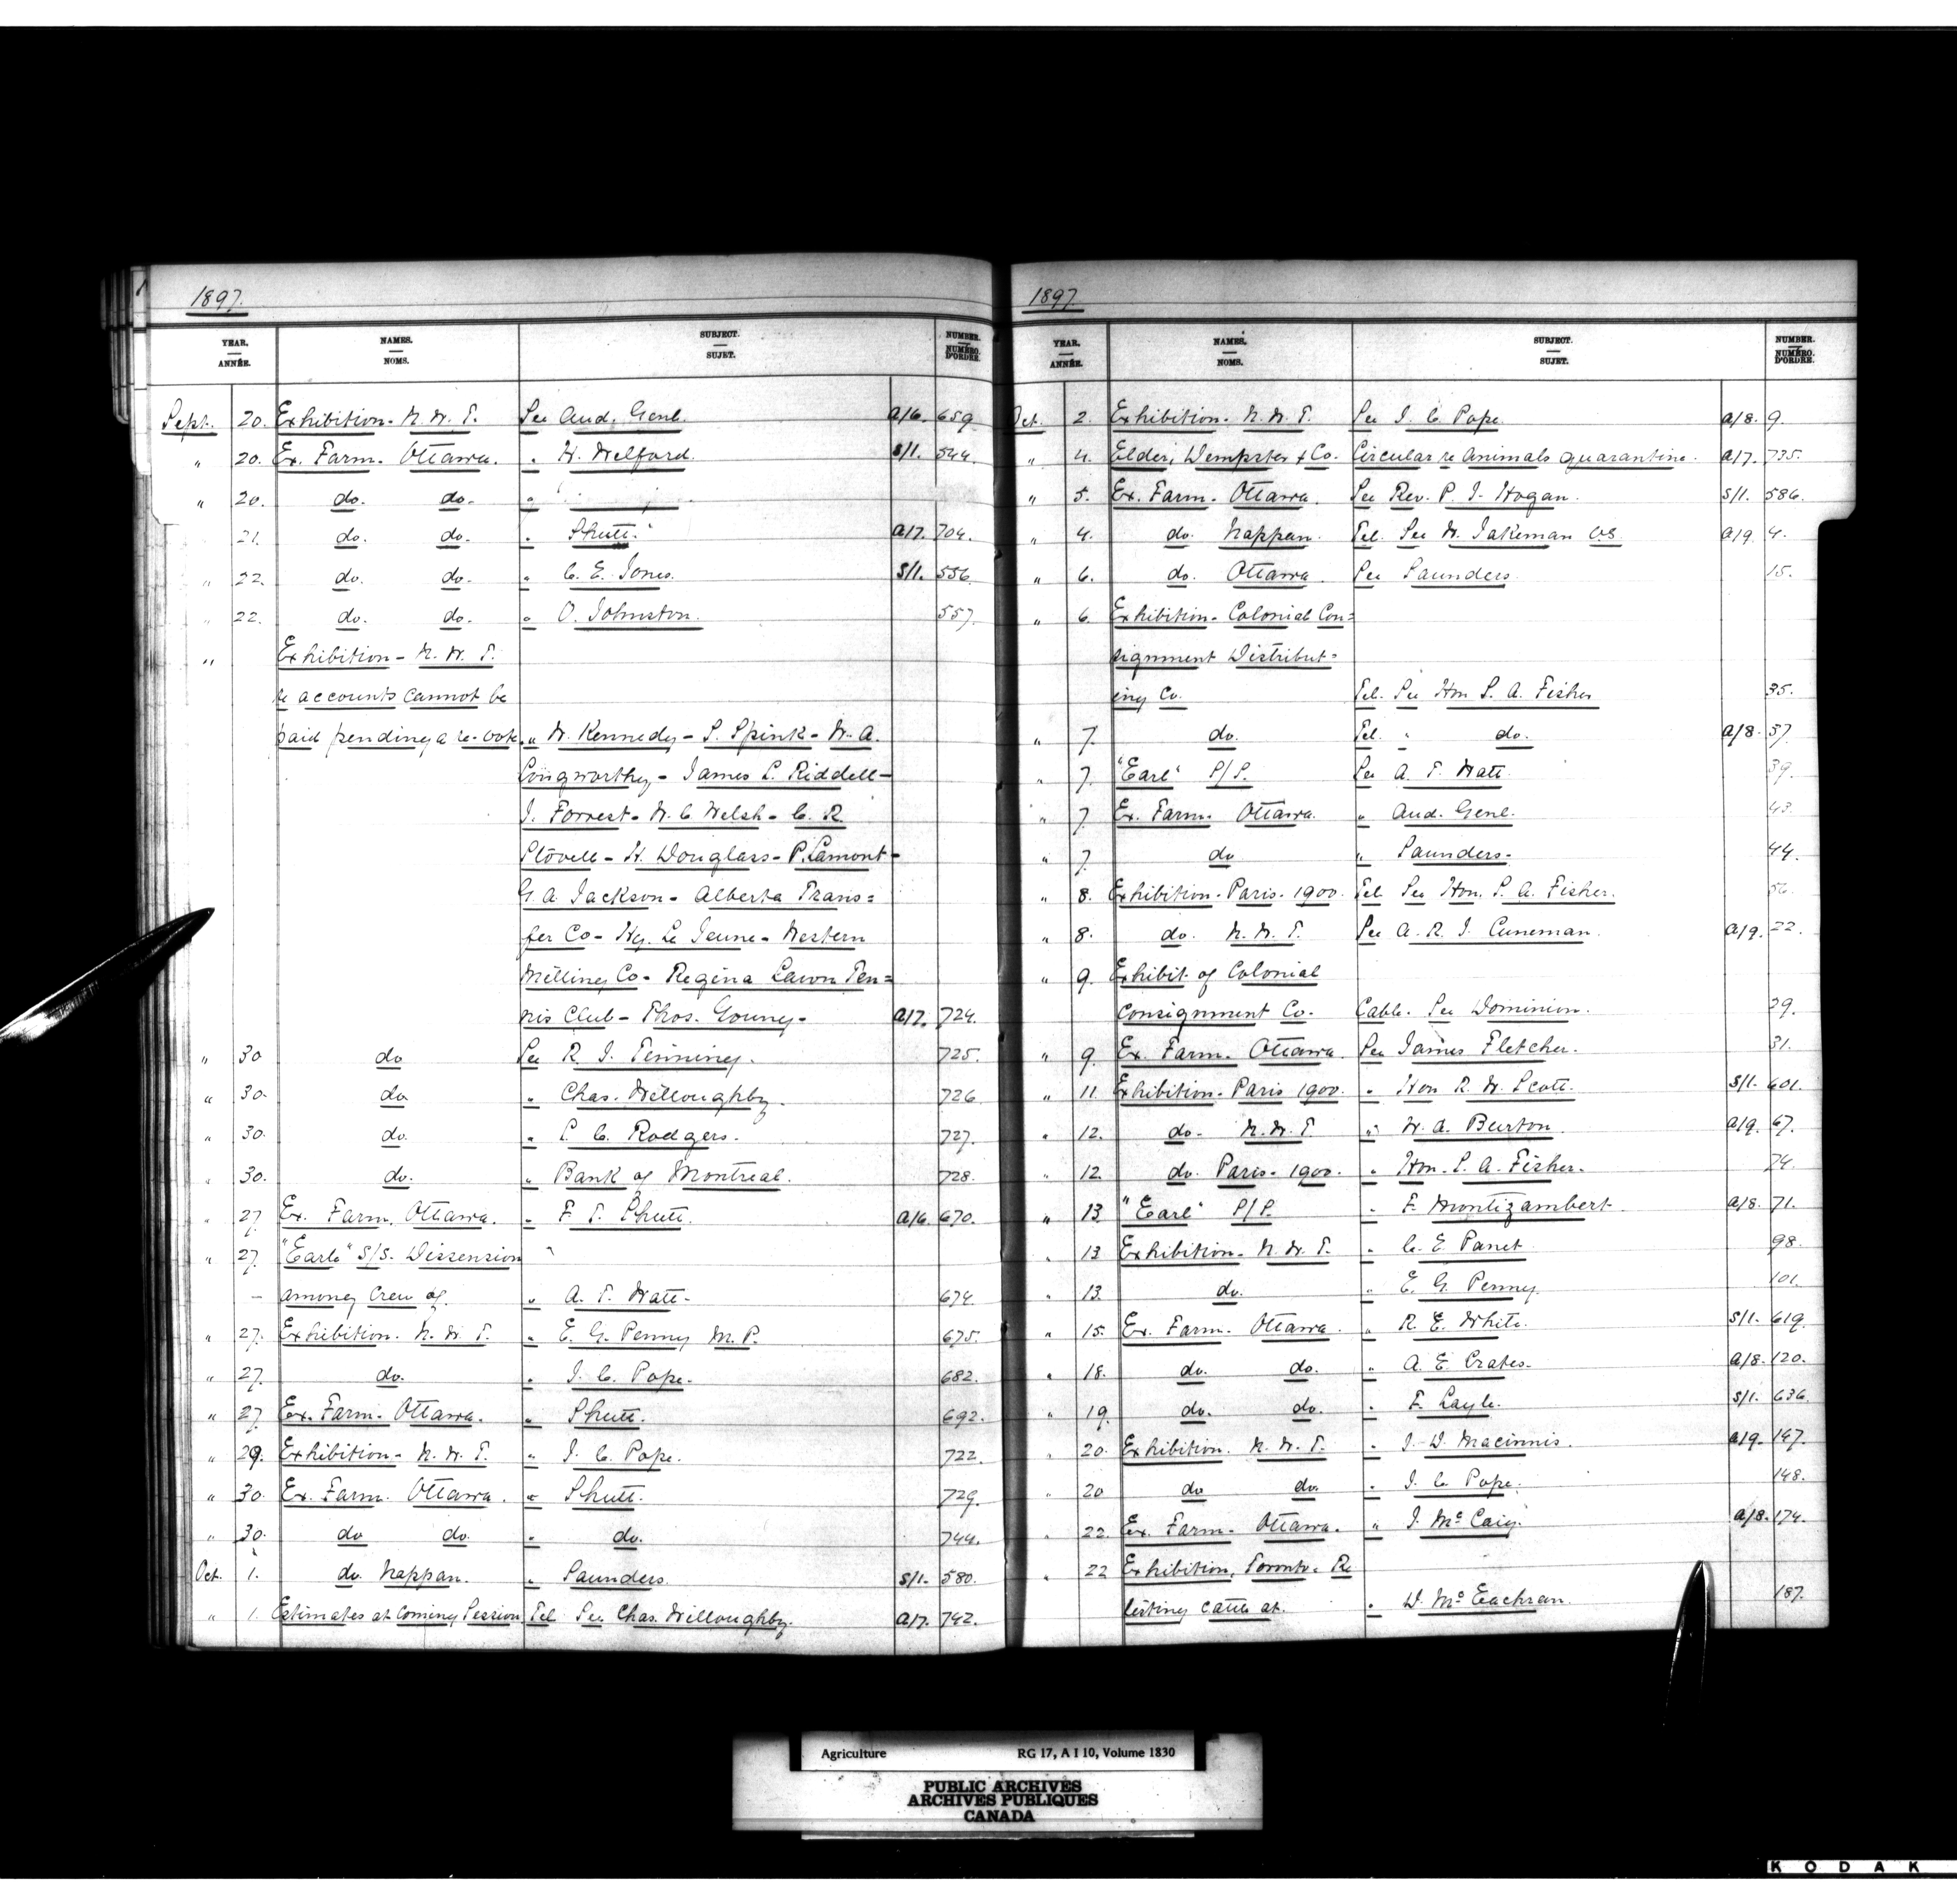 1897.
YEAR. ANNÉE. NAMES. NOMS. SUBJECT. SUJET. NUMBER. NUMÉRO D'ORDRE.
Sept. 20. Exhibition - N. W. T. See Aud. Genl. a/6. 659
" 20. Ex. Farm - Ottawa. " H. Welford. s/1. 544.
" 20. do. do. "
21. do. do. " Shutt. a/7. 704.
" 22. do. do. " C. E. Jones. s/1. 556.
" 22. do. do. " O. Johnston. 557.
" Exhibition - N. W. T.
re accounts cannot be
paid pending a re-vote. " W. Kennedy - S. Spink - W. A.
Longworthy - James L. Riddell -
J. Forrest - W. C. Welsh - C. R.
Stovell - H. Douglass - P. Lamont -
G. A. Jackson - Alberta Trans=
fer Co - Hy. Le Jeune - Western
Milling Co - Regina Lawn Ten=
nis Club - Thos. Young - a/7. 724.
" 30 do See R. J. Tenning. 725.
" 30. do " Chas. Willoughby. 726.
" 30. do. " S. C. Rodgers. 727.
" 30. do. " Bank of Montreal. 728.
" 27. Ex. Farm. Ottawa. " F. T. Shutt. a/6. 670.
" 27. "Earl" S/S. Dissension
among Crew of. " A. T. Watt. 674.
" 27. Exhibition. N. W. T. " E. G. Penny M. P. 675.
" 27. do. " J. C. Pope. 682.
" 27. Ex. Farm - Ottawa. " Shutt. 692.
" 29. Exhibition - N. W. T. " J. C. Pope. 722.
" 30. Ex. Farm. Ottawa. " Shutt. 729.
" 30. do do. " do. 744.
Oct. 1. do. Nappan. " Saunders. s/1. 580.
" 1. Estimates at Coming Session Tel. See Chas. Willoughby. a/7. 742.
1897.
YEAR. ANNÉE. NAMES. NOMS. SUBJECT. SUJET. NUMBER. NUMÉRO D'ORDRE.
Oct. 2. Exhibition - N. W. T. See J. C. Pope. a/8. 9.
" 4. Elder, Dempster & Co. Circular re Animals quarantine. a/7. 735.
" 5. Ex. Farm - Ottawa. See Rev. P. J. Hogan. s/1. 586.
" 4. do. Nappan. Tel. See W. Jakeman V.S. a/9. 4.
" 6. do. Ottawa. See Saunders. 15.
" 6. Exhibition - Colonial Con=
signment Distribut=
ing Co. Tel. See Hon S. A. Fisher 35.
" 7. do. Tel. " do. a/8. 37.
" 7. "Earl" S/S. See A. T. Watt. 39.
" 7. Ex. Farm. Ottawa. " Aud. Genl. 43.
" 7. do " Saunders. 44.
" 8. Exhibition - Paris - 1900. Tel. See Hon. S. A. Fisher. 56.
" 8. do. N. W. T. See A. R. J. Cuneman. a/9. 22.
" 9. Exhibit of Colonial
Consignment Co. Cable. See Dominion. 29.
" 9. Ex. Farm. Ottawa. See James Fletcher. 31.
" 11. Exhibition - Paris 1900. " Hon R. W. Scott. s/1. 601.
" 12. do. N. W. T. " W. A. Burton. a/9. 67.
" 12. do. Paris - 1900. " Hon. S. A. Fisher. 74.
" 13. "Earl" S/S. " F. Montizambert a/8. 71.
" 13 Exhibition - N. W. T. " C. E. Panet 98.
" 13. do. " E. G. Penny. 101.
" 15. Ex. Farm - Ottawa. " R. E. White. s/1. 619.
" 18. do. do. " A. E. Crates. a/8. 120.
" 19. do. do. " F. Layle. s/1. 636.
" 20. Exhibition. N. W. T. " J. D. Macinnis. a/9. 147.
" 20 do do. " J. C. Pope. 148.
" 22. Ex. Farm - Ottawa. " J. McCaig. a/8. 174.
" 22 Exhibition, Toronto. Re
testing cattle at. " D. McEachran. 187.
Agriculture RG 17, A I 10, Volume 1830
PUBLIC ARCHIVES
ARCHIVES PUBLIQUES
CANADA
KODAK